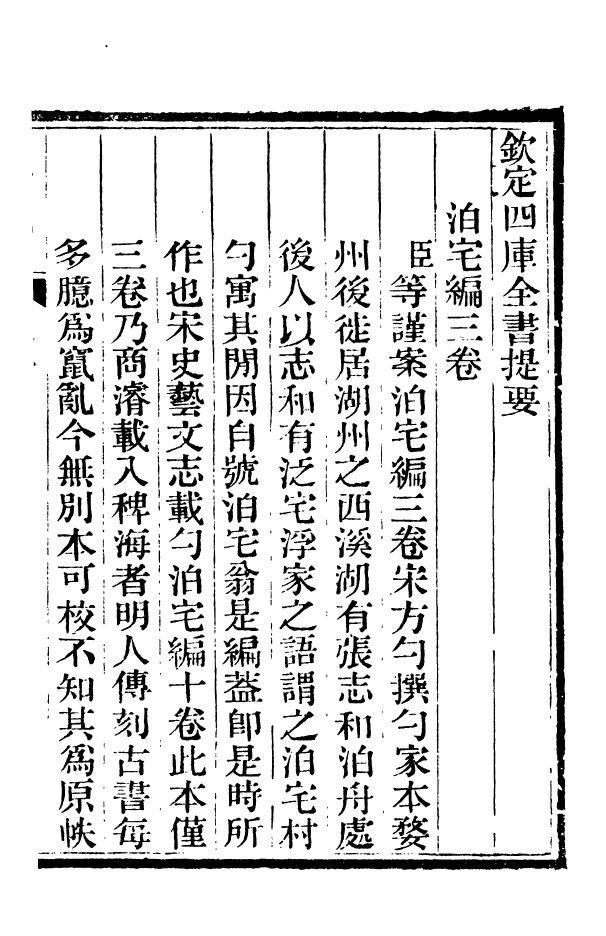 欽定四庫全書提要
泊宅編三卷
臣等謹案泊宅編三卷宋方勺撰勺家本婺
州後徙居湖州之西溪湖有張志和泊舟處
後人以志和有泛宅浮家之語謂之泊宅村
勺寓其閒因自號泊宅翁是編葢卽是時所
作也宋史藝文志載勺泊宅編十卷此本僅
三卷乃商濬載入稗海者明人傳刻古書每
多臆爲竄亂今無別本可校不知其爲原帙